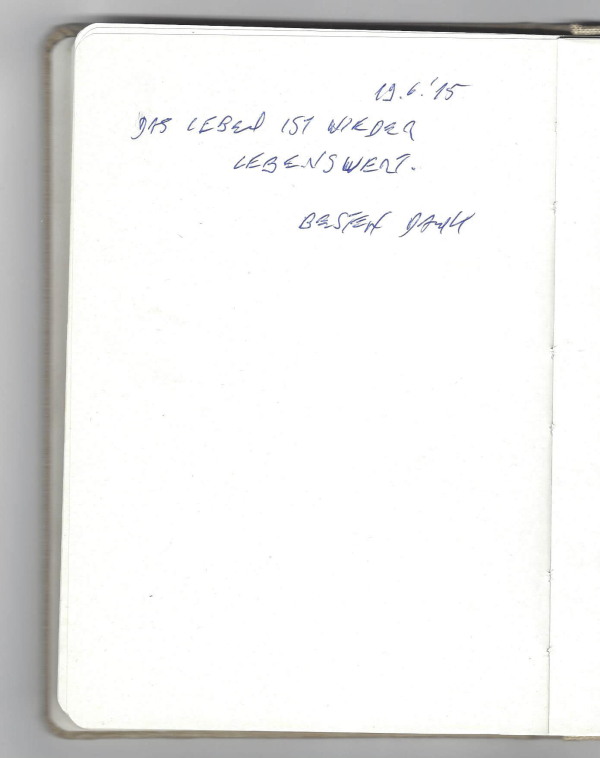 19.6.'15
DAS LEBEN IST WIEDER
LEBENSWERT.
BESTEN DANK